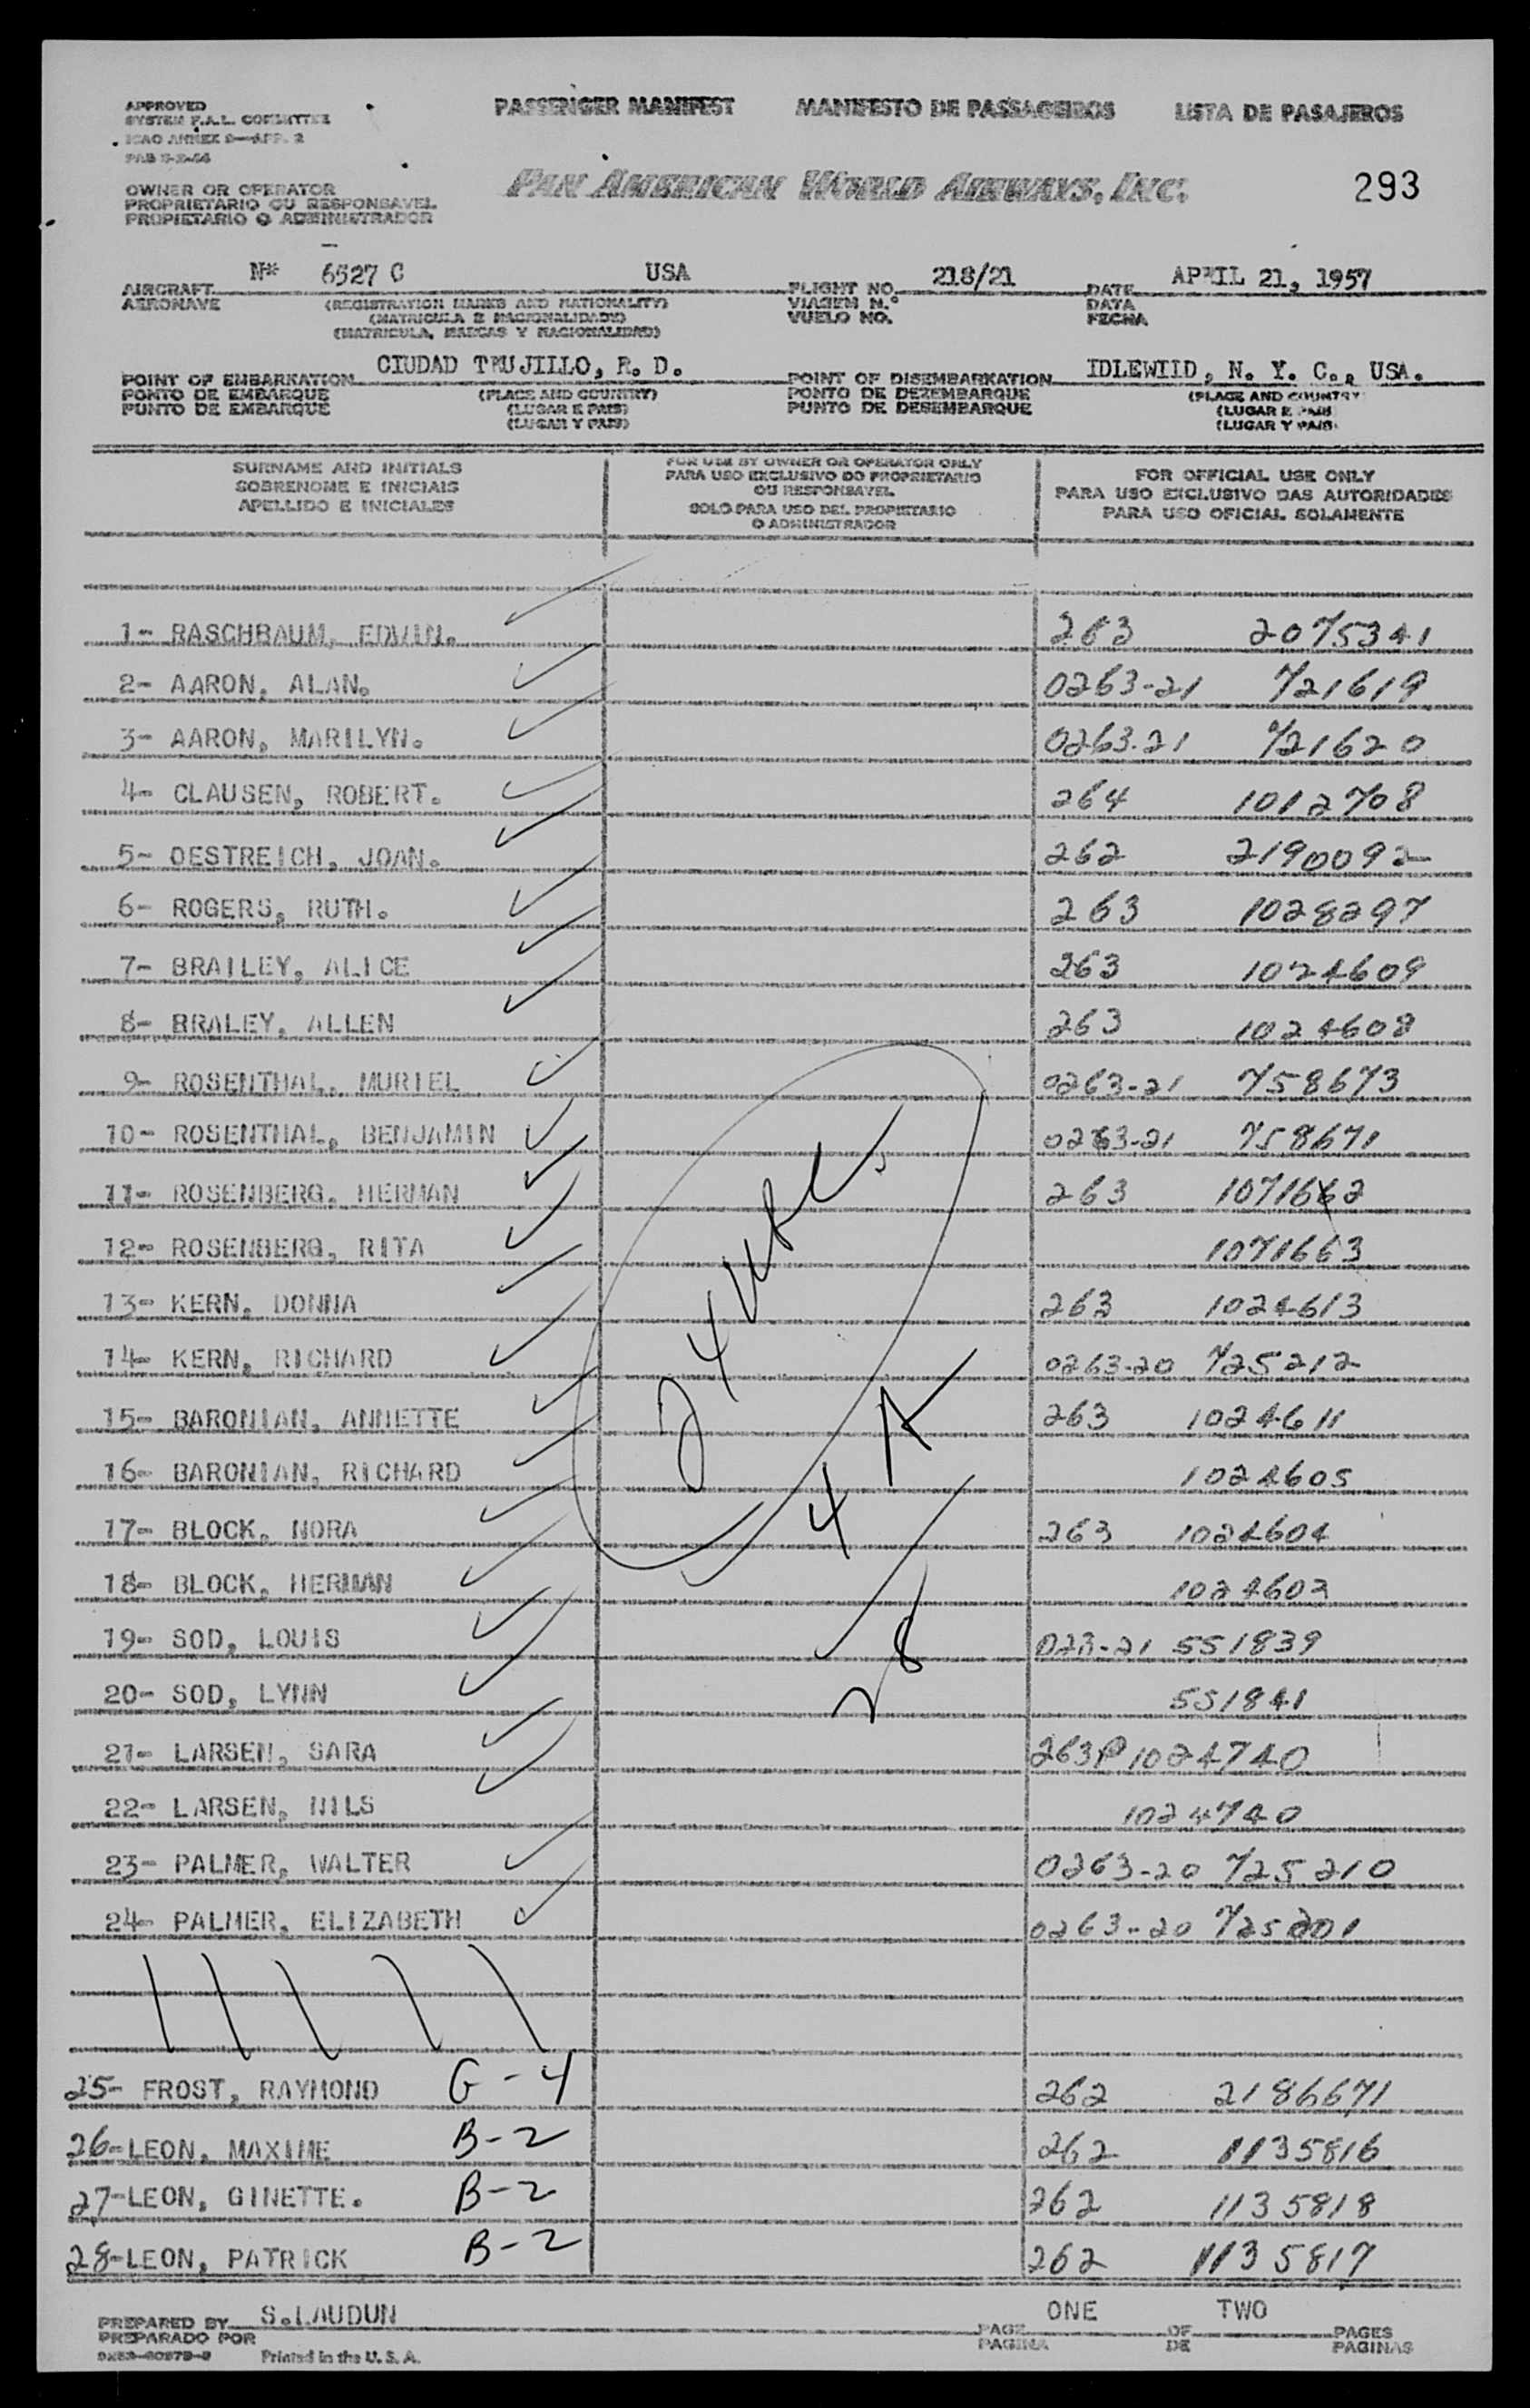 APPROVED
SYSTEM F.A.L. COMMITTEE
ICAO ANNEX 9—APP. 2
PASSENGER MANIFEST MANIFESTO DE PASSAGEIROS LISTA DE PASAJEROS
OWNER OR OPERATOR
PROPRIETARIO OU RESPONSAVEL
PROPIETARIO O ADMINISTRADOR
PAN AMERICAN WORLD AIRWAYS, INC.
293
AIRCRAFT N* 6527 C USA FLIGHT NO. 218/21 DATE APRIL 21, 1957
AERONAVE (REGISTRATION MARKS AND NATIONALITY) VIAGEM N.° DATA
(MATRICULA E NACIONALIDADE) VUELO NO. FECHA
(MATRICULA, MARCAS Y NACIONALIDAD)
POINT OF EMBARKATION CIUDAD TRUJILLO, R. D. POINT OF DISEMBARKATION IDLEWILD, N. Y. C., USA.
PONTO DE EMBARQUE (PLACE AND COUNTRY) PONTO DE DEZEMBARQUE (PLACE AND COUNTRY)
PUNTO DE EMBARQUE (LUGAR E PAIS) PUNTO DE DESEMBARQUE (LUGAR E PAIS)
(LUGAR Y PAIS) (LUGAR Y PAIS)
SURNAME AND INITIALS
SOBRENOME E INICIAIS
APELLIDO E INICIALES
FOR USE BY OWNER OR OPERATOR ONLY
PARA USO EXCLUSIVO DO PROPRIETARIO
OU RESPONSAVEL
SOLO PARA USO DEL PROPIETARIO
O ADMINISTRADOR
FOR OFFICIAL USE ONLY
PARA USO EXCLUSIVO DAS AUTORIDADES
PARA USO OFICIAL SOLAMENTE
1- RASCHBAUM, EDWIN. 263 2075341
2- AARON, ALAN. 0263-21 721619
3- AARON, MARILYN. 0263-21 721620
4- CLAUSEN, ROBERT. 264 1012708
5- OESTREICH, JOAN. 262 2190092
6- ROGERS, RUTH. 263 1028297
7- BRAILEY, ALICE 263 1024609
8- BRALEY, ALLEN 263 1024608
9- ROSENTHAL, MURIEL 0263-21 758673
10- ROSENTHAL, BENJAMIN 0263-21 758671
11- ROSENBERG, HERMAN 263 1071662
12- ROSENBERG, RITA 1071663
13- KERN, DONNA 263 1024613
14- KERN, RICHARD 0263-20 725212
15- BARONIAN, ANNETTE 263 1024611
16- BARONIAN, RICHARD 1024605
17- BLOCK, NORA 263 1024604
18- BLOCK, HERMAN 1024602
19- SOD, LOUIS 551839
20- SOD, LYNN 551841
21- LARSEN, SARA 263P 1024740
22- LARSEN, NILS 1024740
23- PALMER, WALTER 0263-20 725210
24- PALMER, ELIZABETH 0263-20 725201
24
4 A
28
25- FROST, RAYMOND G-4 262 2186671
26- LEON, MAXIME B-2 262 1135816
27- LEON, GINETTE. B-2 262 1135818
28- LEON, PATRICK B-2 262 1135817
PREPARED BY S.LAUDUN PAGE ONE OF TWO PAGES
PREPARADO POR PAGINA DE PAGINAS
Printed in the U. S. A.